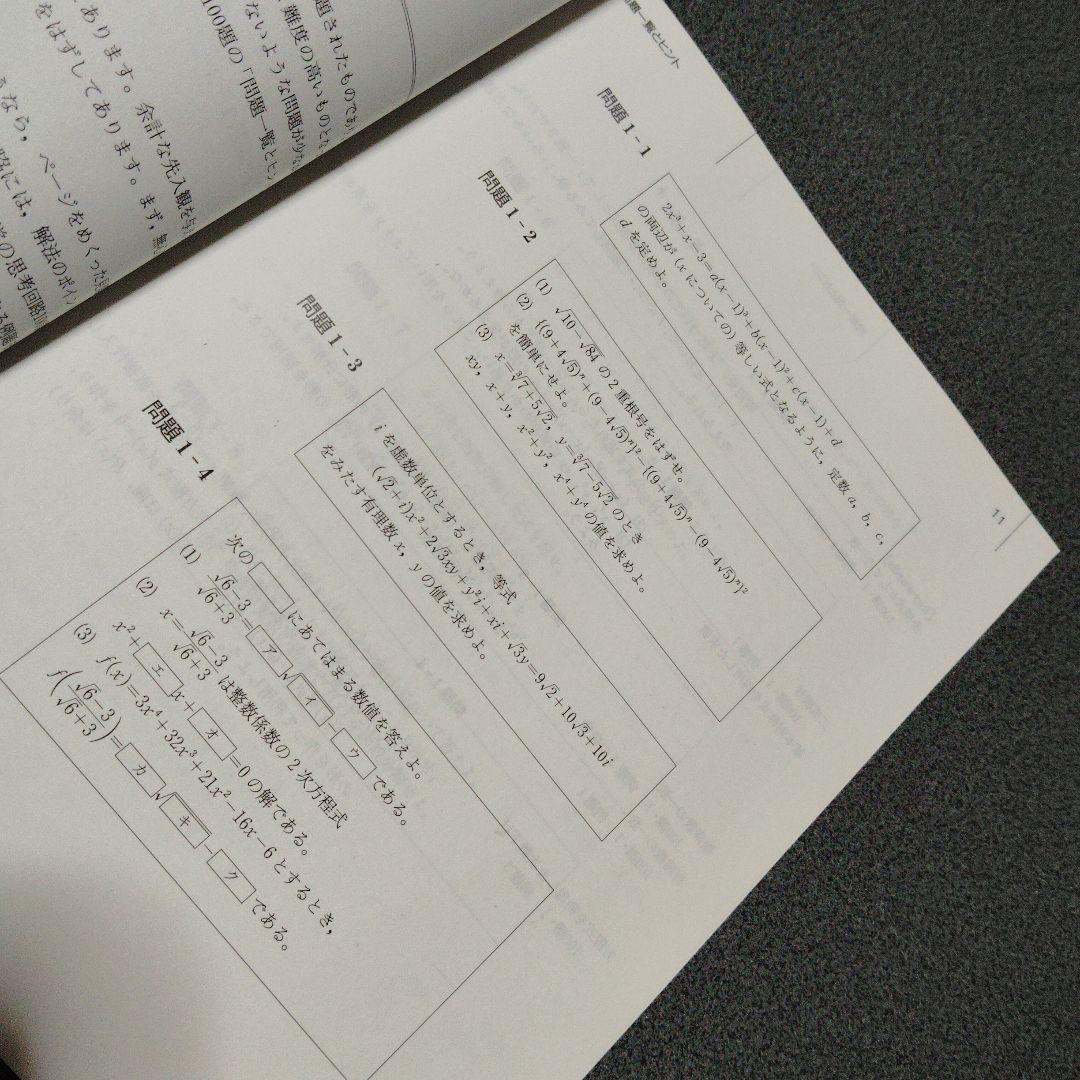 あります。余計な先入観を
をはずしてあります。まず,
うなら, ページをめくった
略には, 解法のポイン
の思考回路
題されたものであ
難度の高いものと
ないような問題が少な
100題の「問題一覧とヒ
題一覧とヒント
11
問題 1-1
2x³+x-3=a(x-1)³+b(x-1)²+c(x-1)+d
の両辺が (x についての) 等しい式となるように, 定数 a, b, c,
d を定めよ。
問題 1-2
(1) √10-√84 の2重根号をはずせ。
(2) {(9+4√5)ⁿ+(9-4√5)ⁿ}²-{(9+4√5)ⁿ-(9-4√5)ⁿ}²
を簡単にせよ。
(3) x=³√7+5√2, y=³√7-5√2 のとき
xy, x+y, x²+y², x⁴+y⁴ の値を求めよ。
問題 1-3
i を虚数単位とするとき, 等式
(√2+i)x²+2√3xy+y²i+xi+√3y=9√2+10√3+10i
をみたす有理数 x, y の値を求めよ。
問題 1-4
次の □ にあてはまる数値を答えよ。
(1) (√6-3)/(√6+3)=ア√イ-ウ である。
(2) x=(√6-3)/(√6+3) は整数係数の2次方程式
x²+エx+オ=0 の解である。
(3) f(x)=3x⁴+32x³+21x²-16x-6 とするとき,
f((√6-3)/(√6+3))=カ√キ-ク である。